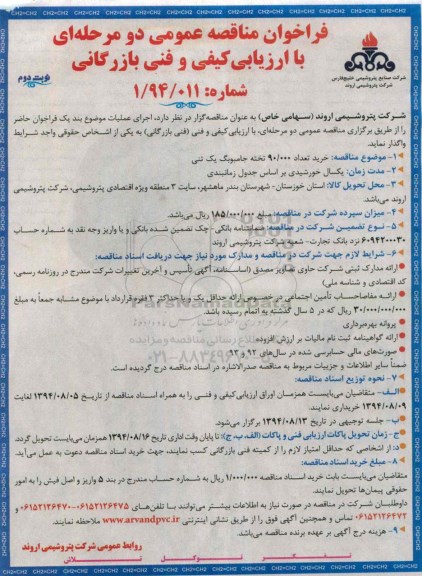 فراخوان مناقصه عمومی دو مرحله‌ای
با ارزیابی کیفی و فنی بازرگانی
شرکت صنایع پتروشیمی خلیج‌فارس
شرکت پتروشیمی اروند
نوبت دوم
شماره: ۱/۹۴/۰۱۱
شرکت پتروشیمی اروند (سهامی خاص) به عنوان مناقصه‌گزار در نظر دارد، اجرای عملیات موضوع بند یک فراخوان حاضر
را از طریق برگزاری مناقصه عمومی دو مرحله‌ای، با ارزیابی کیفی و فنی (فنی بازرگانی) به یکی از اشخاص حقوقی واجد شرایط
واگذار نماید.
۱- موضوع مناقصه: خرید تعداد ۹۰/۰۰۰ تخته جامبوبگ یک تنی
۲- مدت زمان: یکسال خورشیدی بر اساس جدول زمانبندی
۳- محل تحویل کالا: استان خوزستان- شهرستان بندر ماهشهر، سایت ۳ منطقه ویژه اقتصادی پتروشیمی، شرکت پتروشیمی
اروند می‌باشد.
۴- میزان سپرده شرکت در مناقصه: مبلغ ۱۸۵/۰۰۰/۰۰۰ ریال می‌باشد.
۵- نوع تضمین شرکت در مناقصه: ضمانتنامه بانکی- چک تضمین شده بانکی و یا واریز وجه نقد به شماره حساب
۶۰۹۴۲۰۰۳۰ نزد بانک تجارت- شعبه شرکت پتروشیمی اروند
۶- شرایط لازم جهت شرکت در مناقصه و مدارک مورد نیاز جهت دریافت اسناد مناقصه:
ارائه مدارک ثبتی شرکت حاوی تصاویر مصدق (اساسنامه، آگهی تأسیس و آخرین تغییرات شرکت مندرج در روزنامه رسمی،
کد اقتصادی و شناسه ملی)
ارائه مفاصاحساب تأمین اجتماعی در خصوص ارائه حداقل یک و یا حداکثر ۳ فقره قرارداد با موضوع مشابه جمعاً به مبلغ
۳۰/۰۰۰/۰۰۰/۰۰۰ ریال که در ۵ سال گذشته به اتمام رسیده باشد.
پروانه بهره‌برداری
ارائه گواهینامه ثبت نام مالیات بر ارزش افزوده
صورت‌های مالی حسابرسی شده در سال‌های ۹۲ و ۹۳
ضمناً سایر اطلاعات و جزییات مربوط به مناقصه صدرالاشاره در اسناد مناقصه درج گردیده است.
۷- نحوه توزیع اسناد مناقصه:
الف- متقاضیان می‌بایست همزمان اوراق ارزیابی کیفی و فنی را به همراه اسناد مناقصه از تاریخ ۱۳۹۴/۰۸/۰۵ لغایت
۱۳۹۴/۰۸/۰۹ خریداری نمایند.
ب- جلسه توجیهی در تاریخ ۱۳۹۴/۰۸/۱۳ برگزار می‌شود.
ج- زمان تحویل پاکات ارزیابی فنی و پاکات (الف، ب، ج): تا پایان وقت اداری تاریخ ۱۳۹۴/۰۸/۱۶ همزمان می‌بایست تحویل گردد.
د: از اشخاصی که حداقل امتیاز لازم را از کمیته فنی بازرگانی کسب نمایند، جهت خرید اسناد مناقصه دعوت به عمل می‌آید.
۸- مبلغ خرید اسناد مناقصه:
متقاضیان می‌بایست بابت خرید اسناد مناقصه ۱/۰۰۰/۰۰۰ ریال به شماره حساب مندرج در بند ۵ واریز و اصل فیش را به امور
حقوقی پیمان‌ها تحویل نمایند.
داوطلبان شرکت در مناقصه در صورت نیاز به اطلاعات بیشتر می‌توانند با تلفن‌های ۰۶۱۵۲۱۲۶۴۷۵-۰۶۱۵۲۱۲۶۴۷۰ و
۰۶۱۵۲۱۲۶۴۷۲ تماس و همچنین آگهی فوق را از طریق نشانی اینترنتی www.arvandpvc.ir ملاحظه نمایند.
۹- هزینه درج آگهی بر عهده برنده مناقصه می‌باشد.
روابط عمومی شرکت پتروشیمی اروند